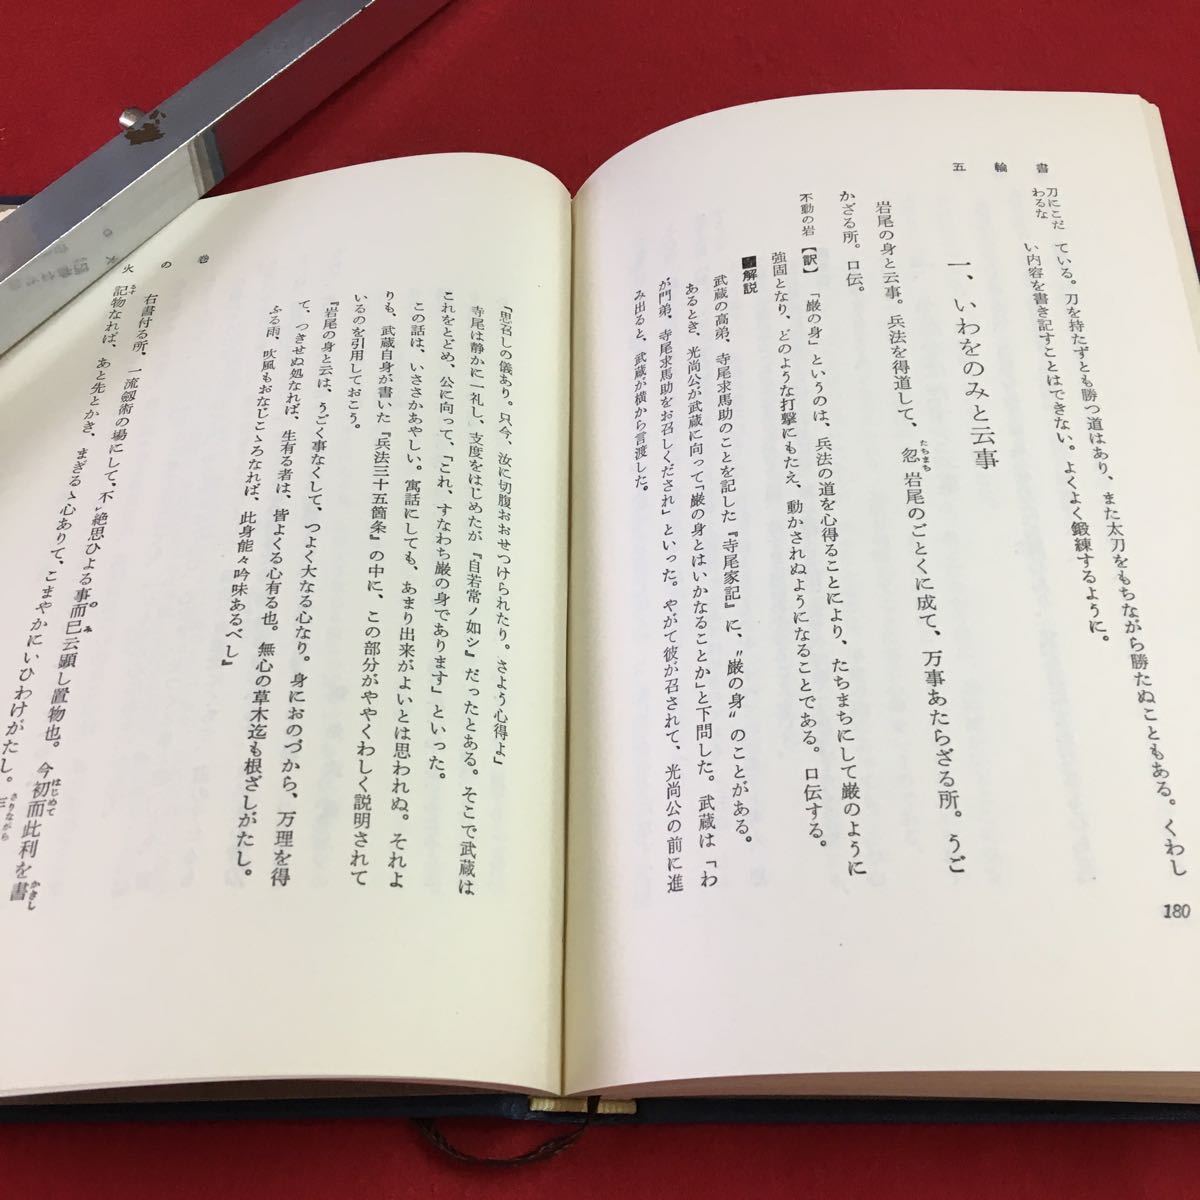 五輪書
刀にこだ
わるな
ている。刀を持たずとも勝つ道はあり、また太刀をもちながら勝たぬこともある。くわし
い内容を書き記すことはできない。よくよく鍛練するように。
一、いわをのみと云事
岩尾の身と云事。兵法を得道して、忽岩尾のごとくに成て、万事あたらざる所。うご
たちまち
かざる所。口伝。
不動の岩
【訳】「巌の身」というのは、兵法の道を心得ることにより、たちまちにして巌のように
強固となり、どのような打撃にもたえ、動かされぬようになることである。口伝する。
解説
武蔵の高弟、寺尾求馬助のことを記した『寺尾家記』に、〝巌の身〟のことがある。
あるとき、光尚公が武蔵に向って「巌の身とはいかなることか」と下問した。武蔵は「わ
が門弟、寺尾求馬助をお召しくだされ」といった。やがて彼が召されて、光尚公の前に進
み出ると、武蔵が横から言渡した。
180
「思召しの儀あり。只今、汝に切腹おおせつけられたり。さよう心得よ」
寺尾は静かに一礼し、支度をはじめたが『自若常ノ如シ』だったとある。そこで武蔵は
これをとどめ、公に向って、「これ、すなわち巌の身であります」といった。
この話は、いささかあやしい。寓話にしても、あまり出来がよいとは思われぬ。それよ
りも、武蔵自身が書いた『兵法三十五箇条』の中に、この部分がややくわしく説明されて
いるのを引用しておこう。
『岩尾の身と云は、うごく事なくして、つよく大なる心なり。身におのづから、万理を得
て、つきせぬ処なれば、生有る者は、皆よくる心有る也。無心の草木迄も根ざしがたし。
ふる雨、吹風もおなじこゝろなれば、此身能々吟味あるべし』
火の巻
右書付る所、一流剱術の場にして、不絶思ひよる事而已云顕し置物也。今初而此利を書
のみ
はじめて
かきし
記物なれば、あと先とかき、まぎるゝ心ありて、こまやかにいひわけがたし。
さりながら